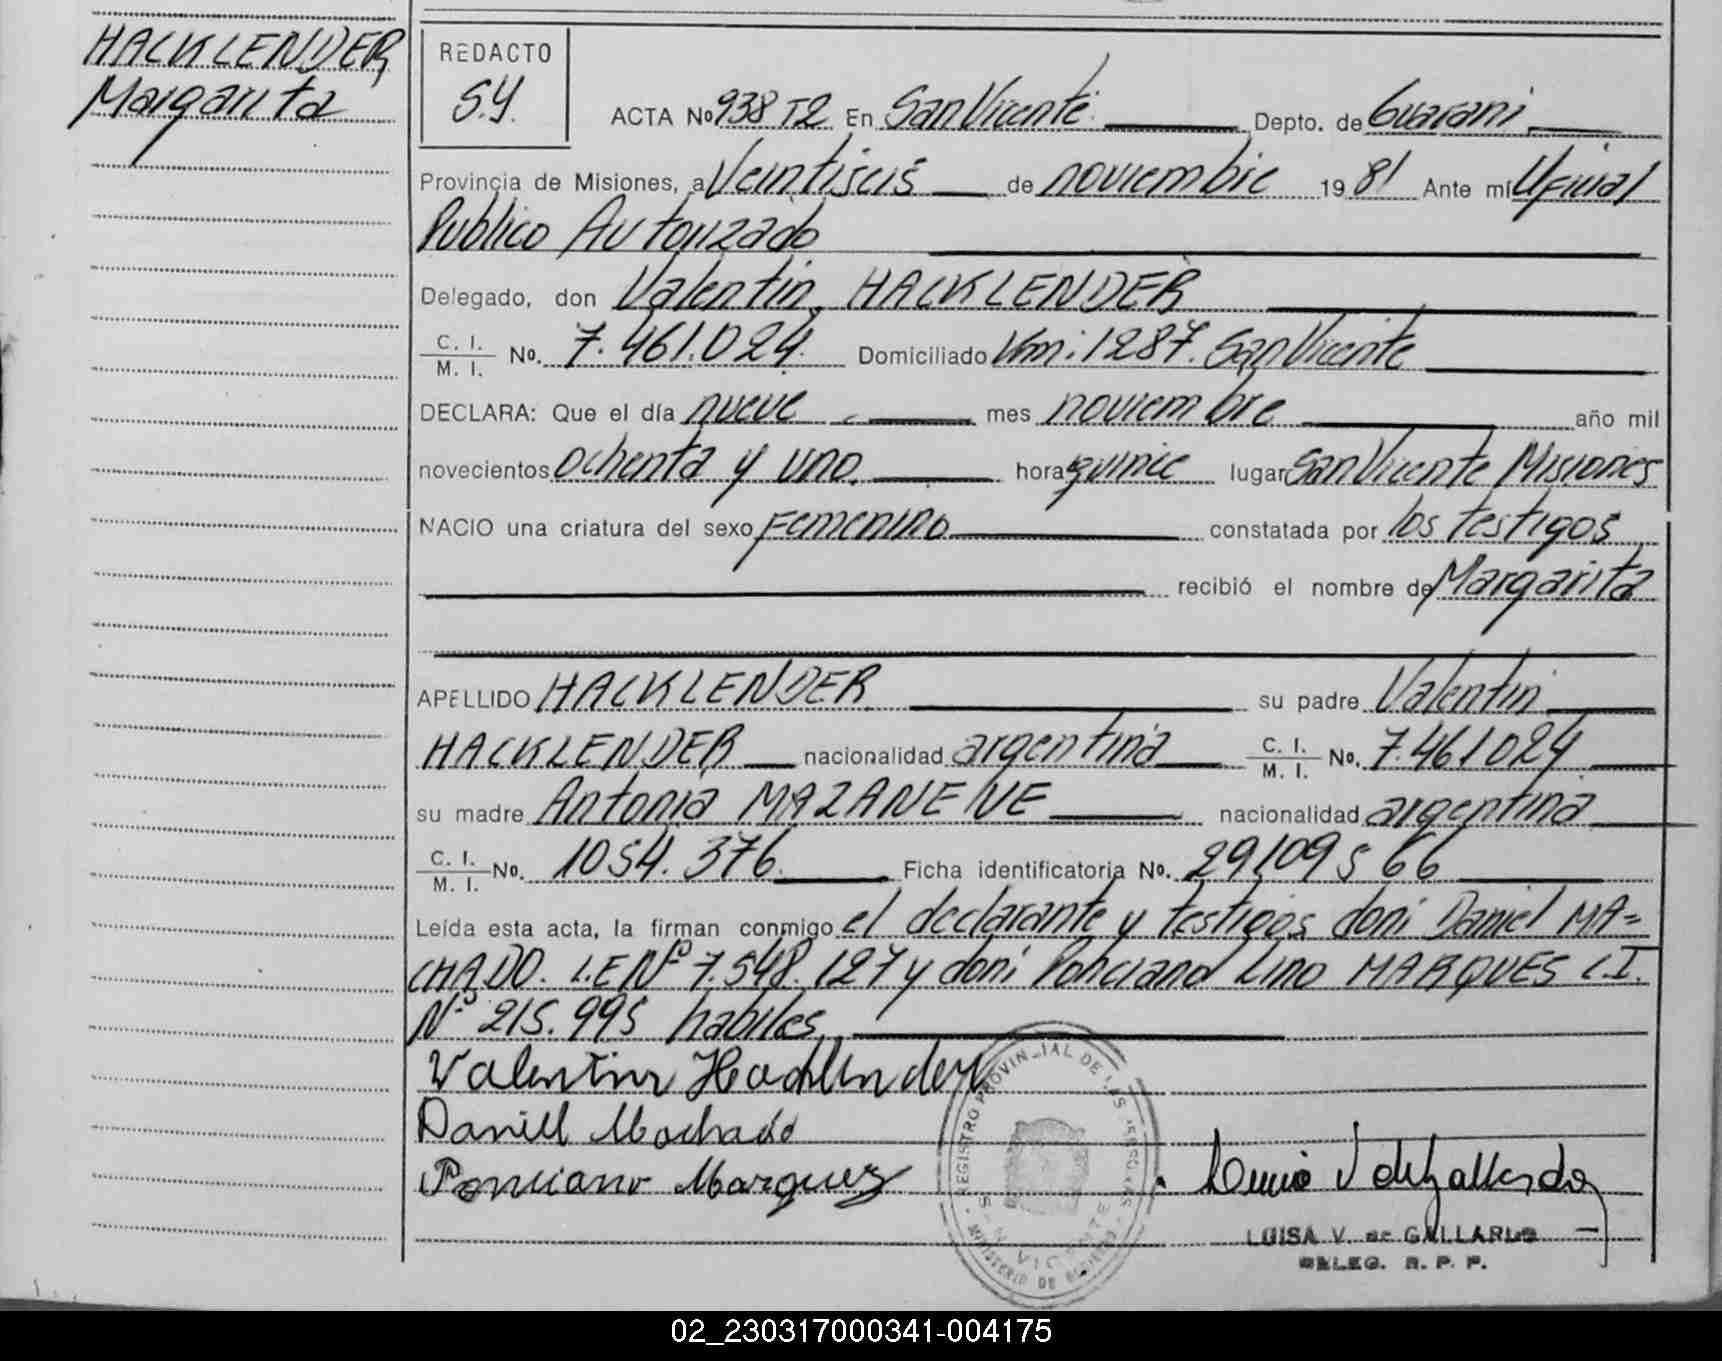 HACKLENDER
Margarita
REDACTO
S.Y.
ACTA Nº 938 T2 En San Vicente. Depto. de Guarani
Provincia de Misiones, a Veintiseis de noviembre 1981 Ante mí Oficial
Publico Autorizado
Delegado, don Valentin, HACKLENDER
C. I. / M. I. Nº. 7.461.024. Domiciliado Km: 1287. San Vicente
DECLARA: Que el día nueve mes noviembre año mil
novecientos ochenta y uno. hora quince lugar San Vicente Misiones
NACIO una criatura del sexo Femenino constatada por los testigos
recibió el nombre de Margarita
APELLIDO HACKLENDER su padre Valentin
HACKLENDER nacionalidad argentina C. I. / M. I. Nº. 7.461024
su madre Antonia nacionalidad argentina
C. I. / M. I. Nº. 1054.376. Ficha identificatoria Nº. 29109566
Leída esta acta, la firman conmigo el declarante y testigos don: Daniel MA=
CHADO. L.E Nº 7.548.127 y don: Ponciano Lino MARQUES C.I.
Nº 215.995 habiles
Valentin Hacklender
Daniel Machado
Ponciano Marquez
REGISTRO PROVINCIAL DE LAS PERSONAS
SAN VICENTE
MINISTERIO DE GOBIERNO
LUISA V. de GALLARDO
DELEG. R. P. P.
02_230317000341-004175